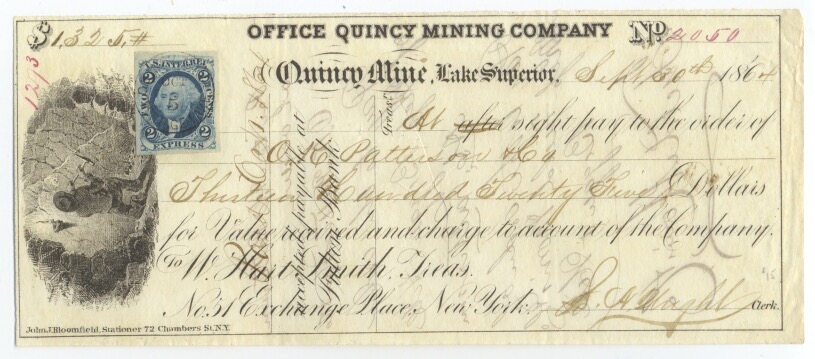 $1,325.#
OFFICE QUINCY MINING COMPANY
No. 2050
1213
Quincy Mine, Lake Superior. Sept. 30th 1864
U.S. INTER. REV.
2 2
TWO CENTS
EXPRESS
At after sight pay to the order of
Patterson & Co
Thirteen Hundred Twenty Five Dollars
for Value received and charge to account of the Company.
To W. Hart Smith, Treas.
No. 51 Exchange Place, New York.
Clerk.
Accepted payable at
Bank.
Treas.
John J. Bloomfield, Stationer 72 Chambers St. N.Y.